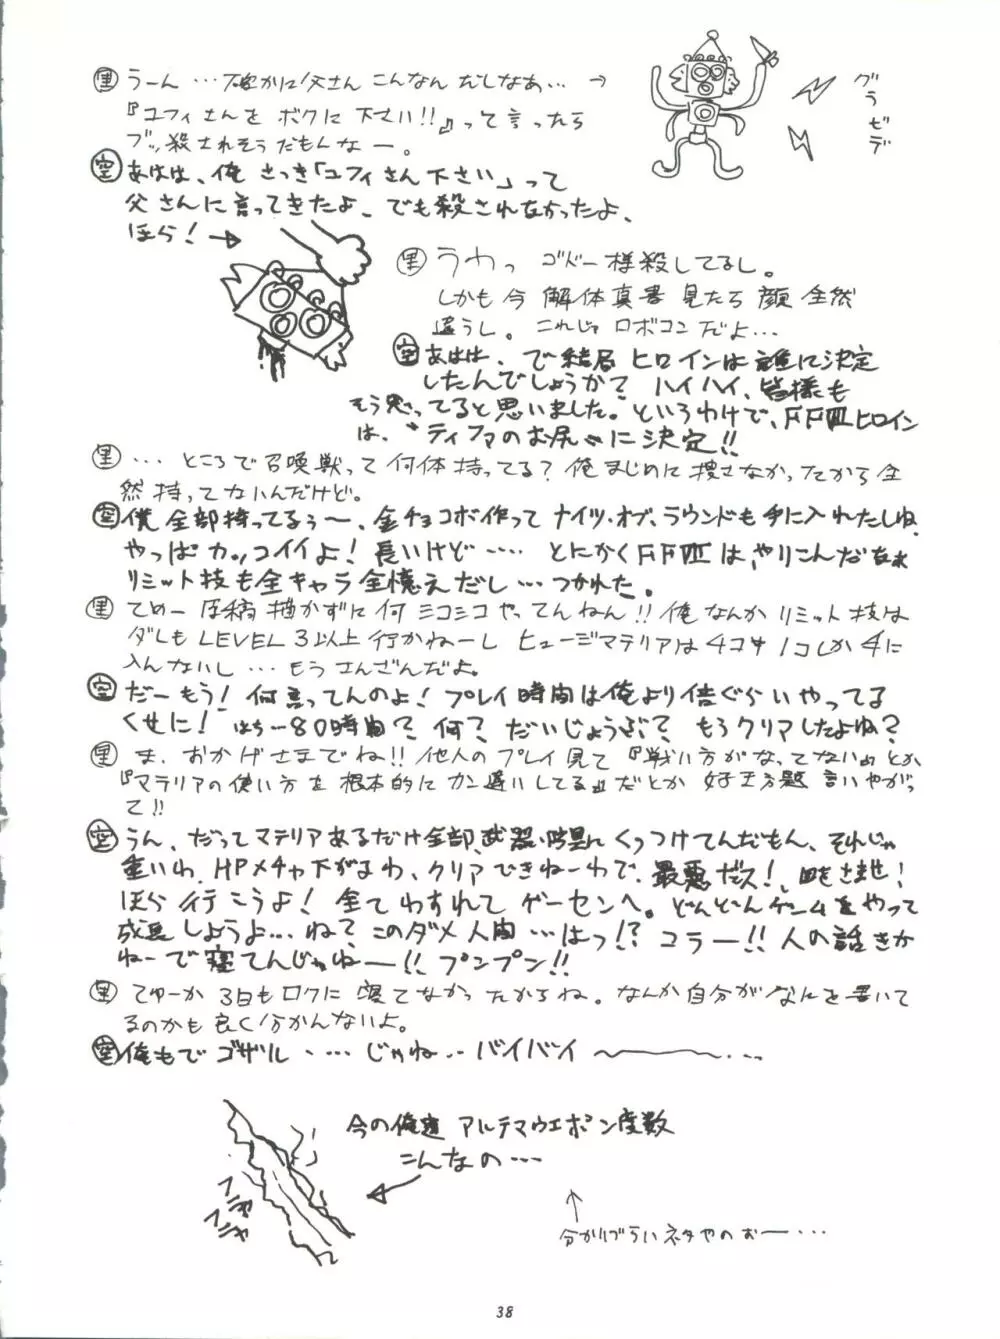 黒 うーん…確かに父さん こんなん だしなぁ… →
『ユフィさんを ボクに 下さい!!』って言ったら
ブッ殺されそうだもんなー。
グラゼデ
空 あはは、俺 さっき「ユフィさん下さい」って
父さんに言ってきたよ、でも殺されなかったよ、
ほら!→
黒 うわっ ゴドー様殺してるし。
しかも今 解体真書 見たら 顔 全然
違うし。これじゃ ロボコンだよ…
空 あはは、で結局 ヒロインは誰に決定
したんでしょうか? ハイハイ、皆様も
そう思ってると思いました。というわけで、FFⅦヒロイン
は、“ティファのお尻”に決定!!
黒 … ところで召喚獣って 何体持ってる? 俺まじめに捜さなかったから全
然持ってないんだけど。
空 僕 全部持ってるぅ〜、金チョコボ作って ナイツ・オブ・ラウンドも手に入れたしね
やっぱ カッコイイよ! 長いけど…… とにかくFFⅦは、やりこんだなぁ
リミット技も全キャラ全憶えだし…つかれた。
黒 てめー 原稿 描かずに 何 シコシコ やってんねん!! 俺なんか リミット技は
ダレも LEVEL 3以上 行かねーし ヒュージマテリアは4コ中 1コしか 手に
入んないし … もう さんざんだよ。
空 だーもう! 何言ってんのよ! プレイ時間は俺より倍ぐらいやってる
くせに! はちー80時間? 何? だいじょうぶ? もうクリアしたよね?
黒 ま、おかげさまでね!! 他人のプレイ見て『戦い方がなってない』とか
『マテリアの使い方を 根本的に カン違いしてる』だとか 好き放題 言いやがっ
て!!
空 うん、だってマテリアあるだけ全部、武器・防具にくっつけてんだもん、それじゃ
重いわ、HPメチャ下がるわ、クリアできねーわで、最悪だス! 目をさませ!
ほら 行こうよ! 全て わすれて ゲーセンへ。どんどんゲームをやって
成長しようよ… ね? このダメ人間 …はっ!? コラー!! 人の話きか
ねーで寝てんじゃねー!! プンプン!!
黒 てゆーか 3日もロクに 寝てなかったからね。なんか自分がなにを書いて
るのかも良く分かんないよ。
空 俺もでゴザル・… じゃね‥バイバイ〜
今の俺達 アルテマウエポン度数
こんなの…
フニャフニャ
分かりづらいネタやのぉー…
38